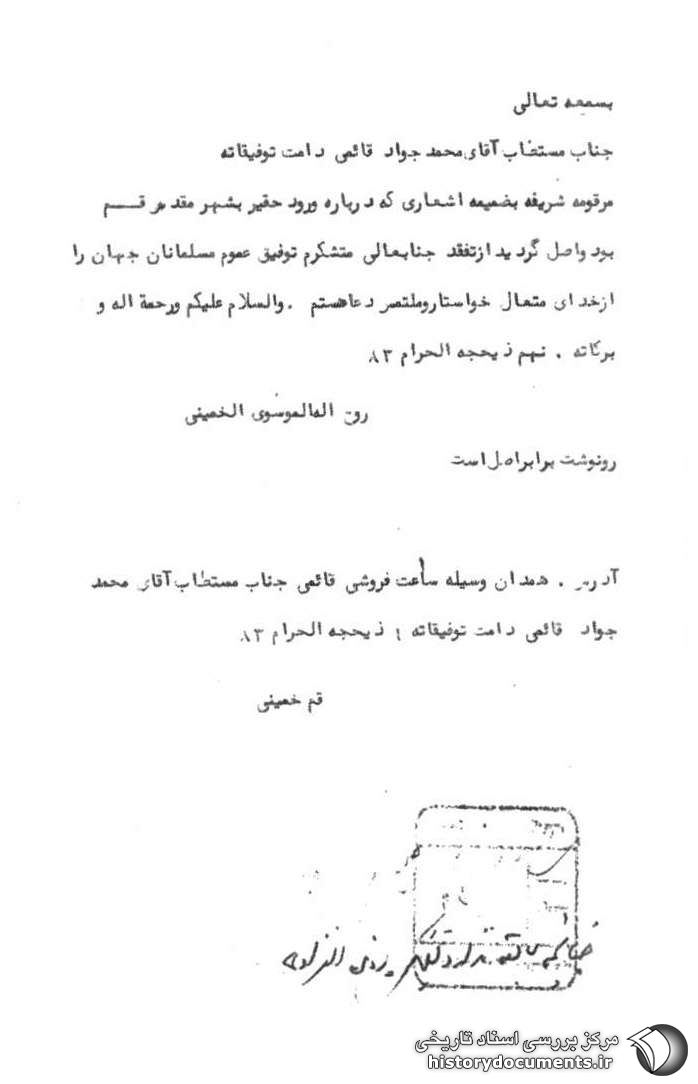 بسمه تعالی
جناب مستطاب آقای محمد جواد قائمی دامت توفیقاته
مرقومه شریفه بضمیمه اشعاری که درباره ورود حقیر بشهر مقدس قـــم
بود واصل گردید ازتفقد جنابعالی متشکرم توفیق عموم مسلمانان جهان را
ازخدای متعال خواستاروملتمس دعاهستم . والسلام علیکم ورحمة اله و
برکاته . نهم ذیحجه الحرام ۸۳
روح اله الموسوی الخمینی
رونوشت برابراصل است
آدرس . همدان وسیله ساعت فروشی قائمی جناب مستطاب آقای محمد
جواد قائمی دامت توفیقاته ۹ ذیحجه الحرام ۸۳
قم خمینی
مرکز بررسی اسناد تاریخی
historydocuments.ir